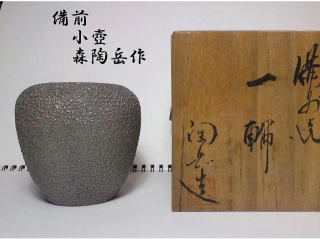 備前
小壺
森陶岳作
備前焼
一輪
陶岳造